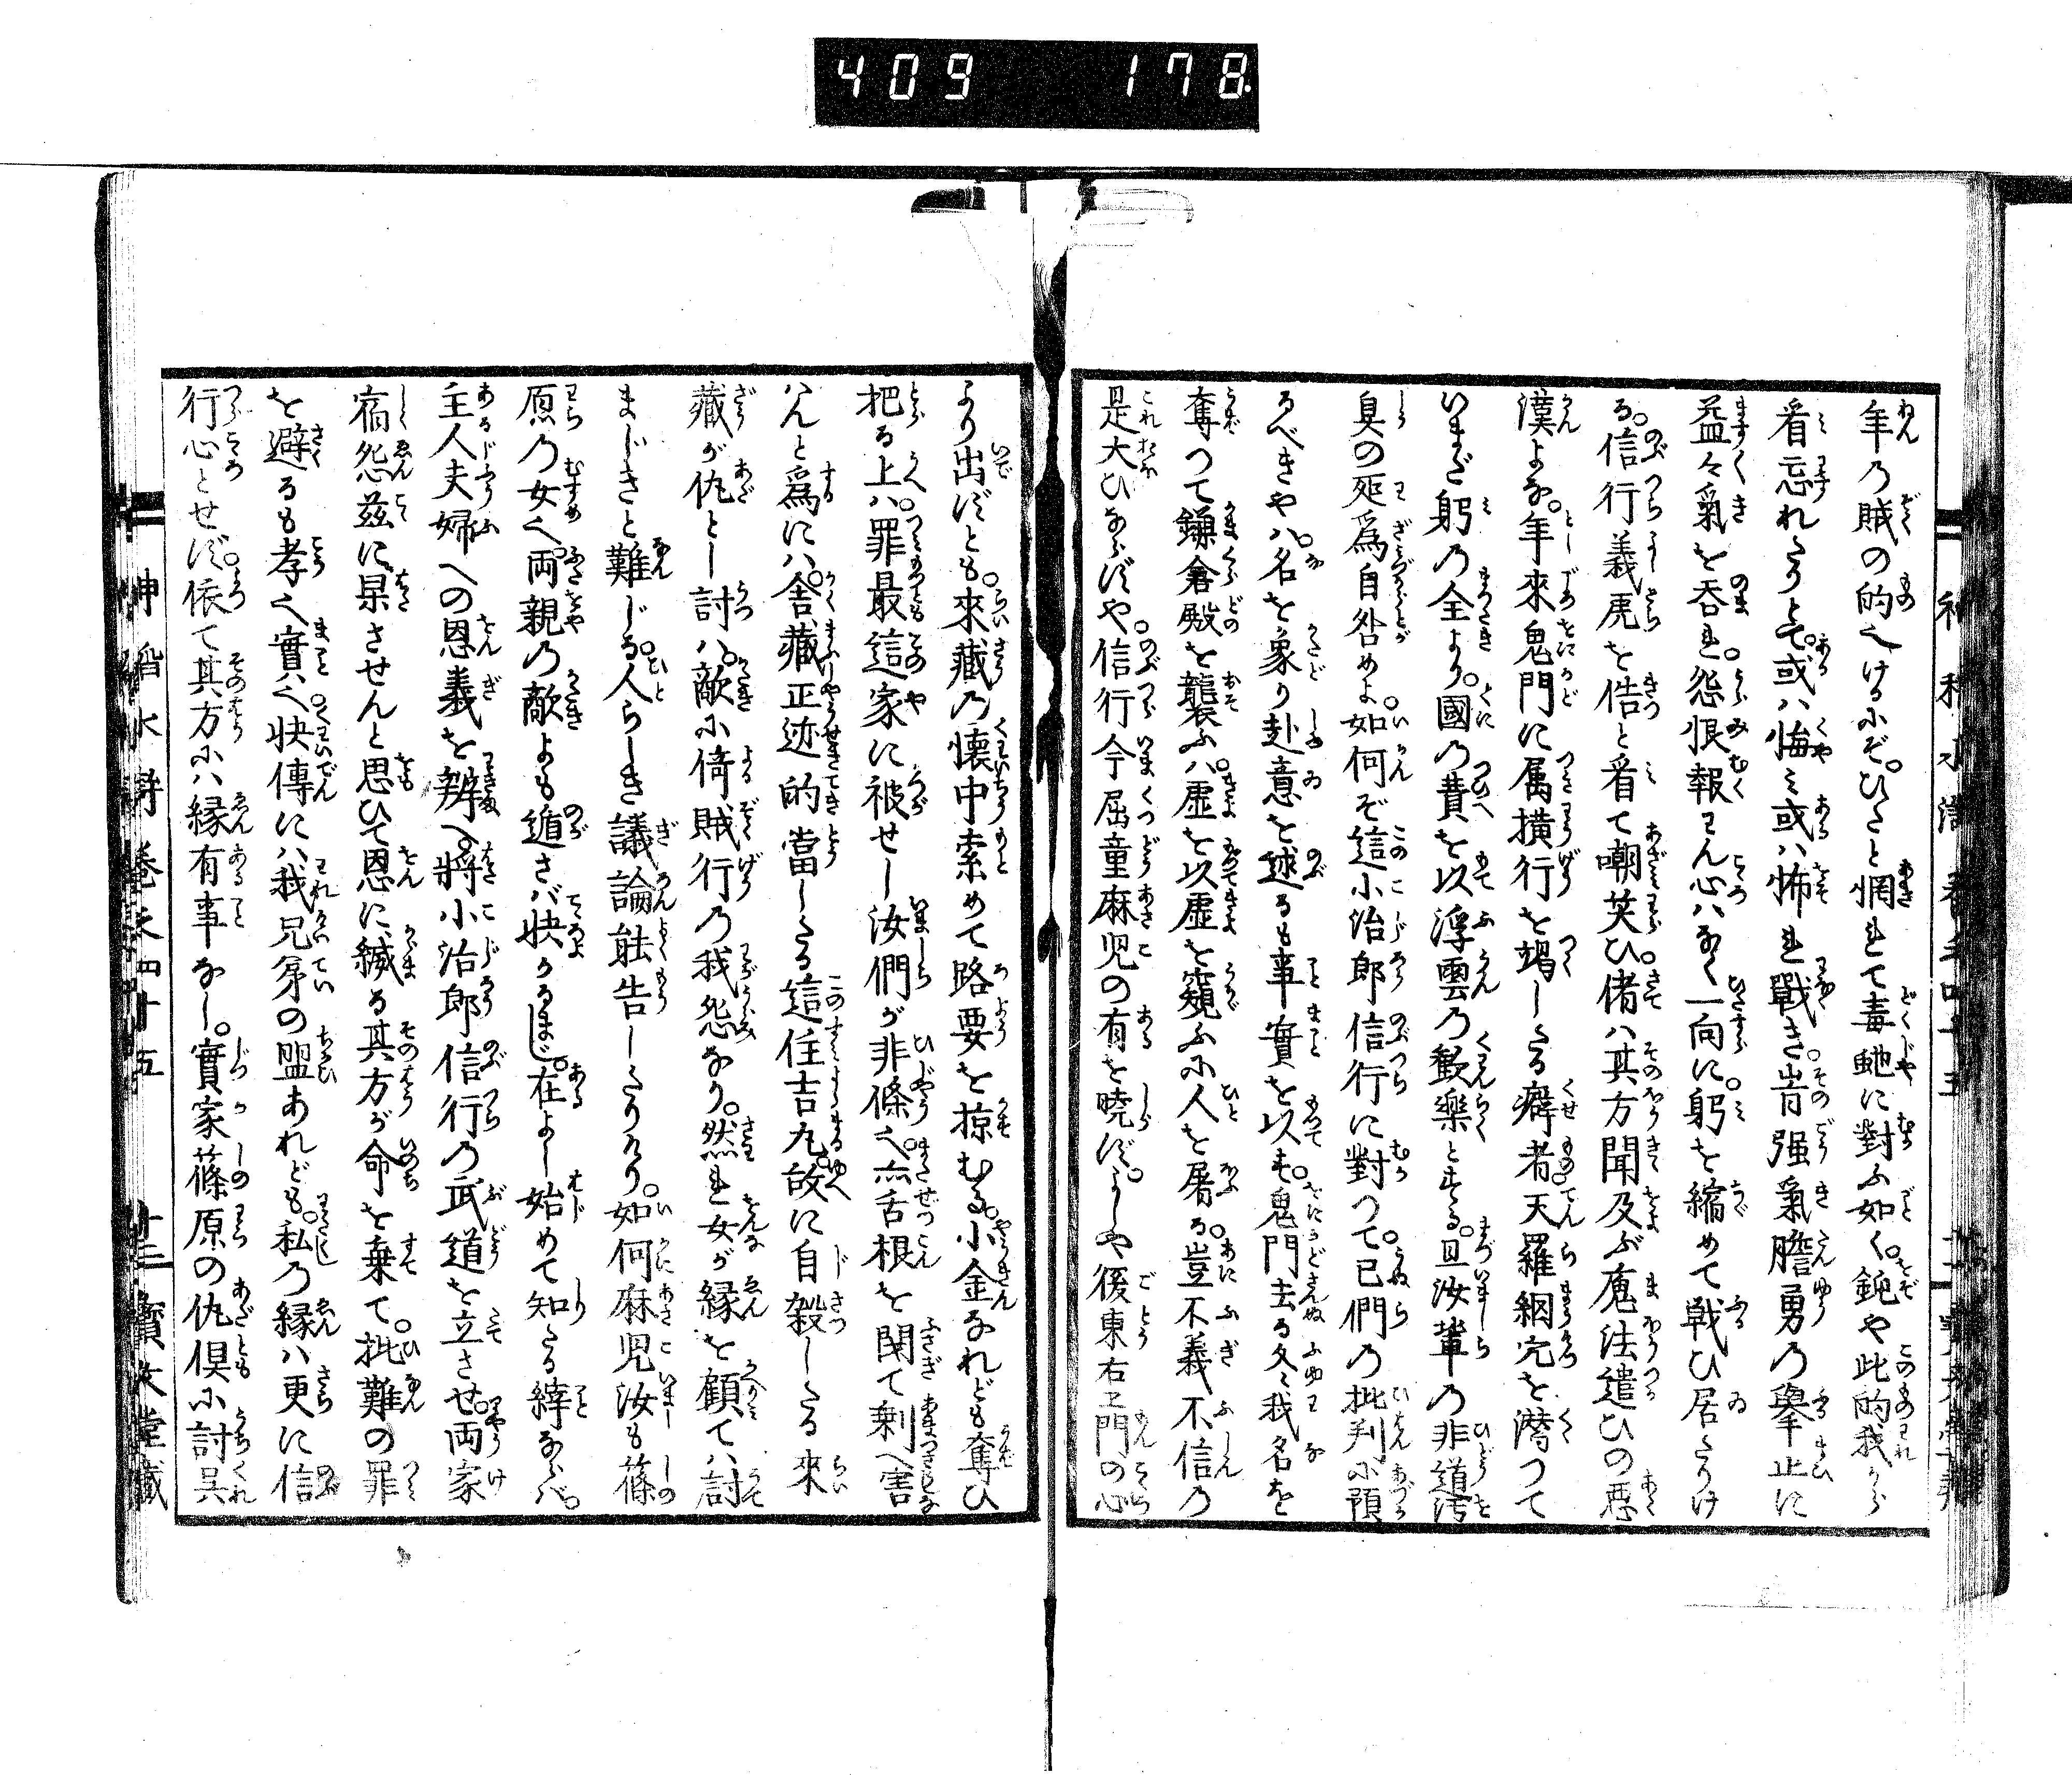 409 178
年乃賊の的也けるにぞ。ひたと惘れて毒虵に對ふ如く。鈍や此的我から
看忘れたりとて。或ハ悔ミ或ハ怖れ戰き。岢强氣膽勇乃擧止に
益々氣を呑れ。怨恨報ハん心ハなく一向に。躬を縮めて戰ひ居たりけ
る。信行義虎を佶と看て嘲笑ひ。偖ハ其方聞及ぶ魔法遣ひの惡
漢よな。年來鬼門に属横行を竭したる癖者。天羅綱完を潜つて
いまだ躬乃全より。國乃費を以浮雲乃歡樂とする。且汝輩の非道汚
臭の所爲自咎めよ。如何ぞ這小治郎信行に對つて。已們の批判に預
るべきや。名を象り赴意を述るも事實を以す。鬼門去る冬我名を
奪つて鎌倉殿を襲ふハ。虚を以虚を窺ふに人を屠る。豈不義不信の
是大ひならずや。信行今屈童麻児の有を曉ず。よしや後東右エ門の心
より出ずとも。來藏の懐中索めて路要を掠むる。小金なれども奪ひ
把る上ハ。罪最這家に被せし汝們が非條也。亦舌根を関て剰へ害
ハんと爲にハ。舎藏正迹的當したる這住吉丸故に自殺したる來
藏が仇とし討ハ。敵に倚賊行の我怨なり。然れ女が縁を顧てハ討
まじきと難じる。人らしき議論能告したりけり。如何麻児汝も篠
原の女也。両親の敵よも遁さバ快かるまじ。在よし始めて知たる縡ならバ。
主人夫婦への恩義を辨へ。將小治郎信行の武道を立させ。両家
宿怨茲に果させんと思ひて恩に縅る其方が命を棄て。批難の罪
を避るも孝也實也。快傳にハ我兄弟の盟あれども。私の縁ハ更に信
行心とせず。依て其方にハ縁有事なし。實家篠原の仇倶に討呉
神稻水滸巻之四十五 廿三 寶文堂藏